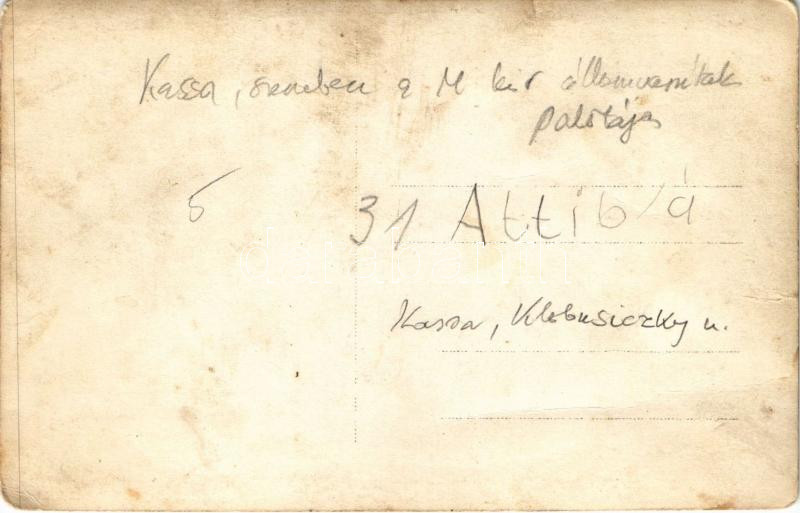 Kassa, szemben a M kir államvasútak
palotája
5
31 Attib/á
Kassa, Klobusiczky u.